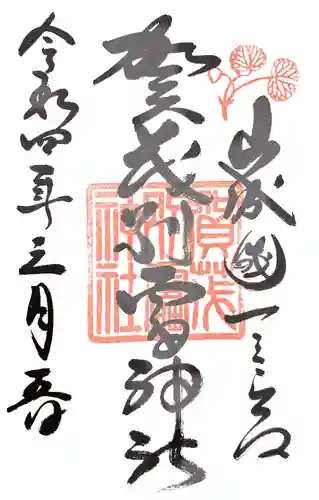 山城國一之宮
賀茂別雷神社
令和四年三月五日
賀茂
別雷
神社